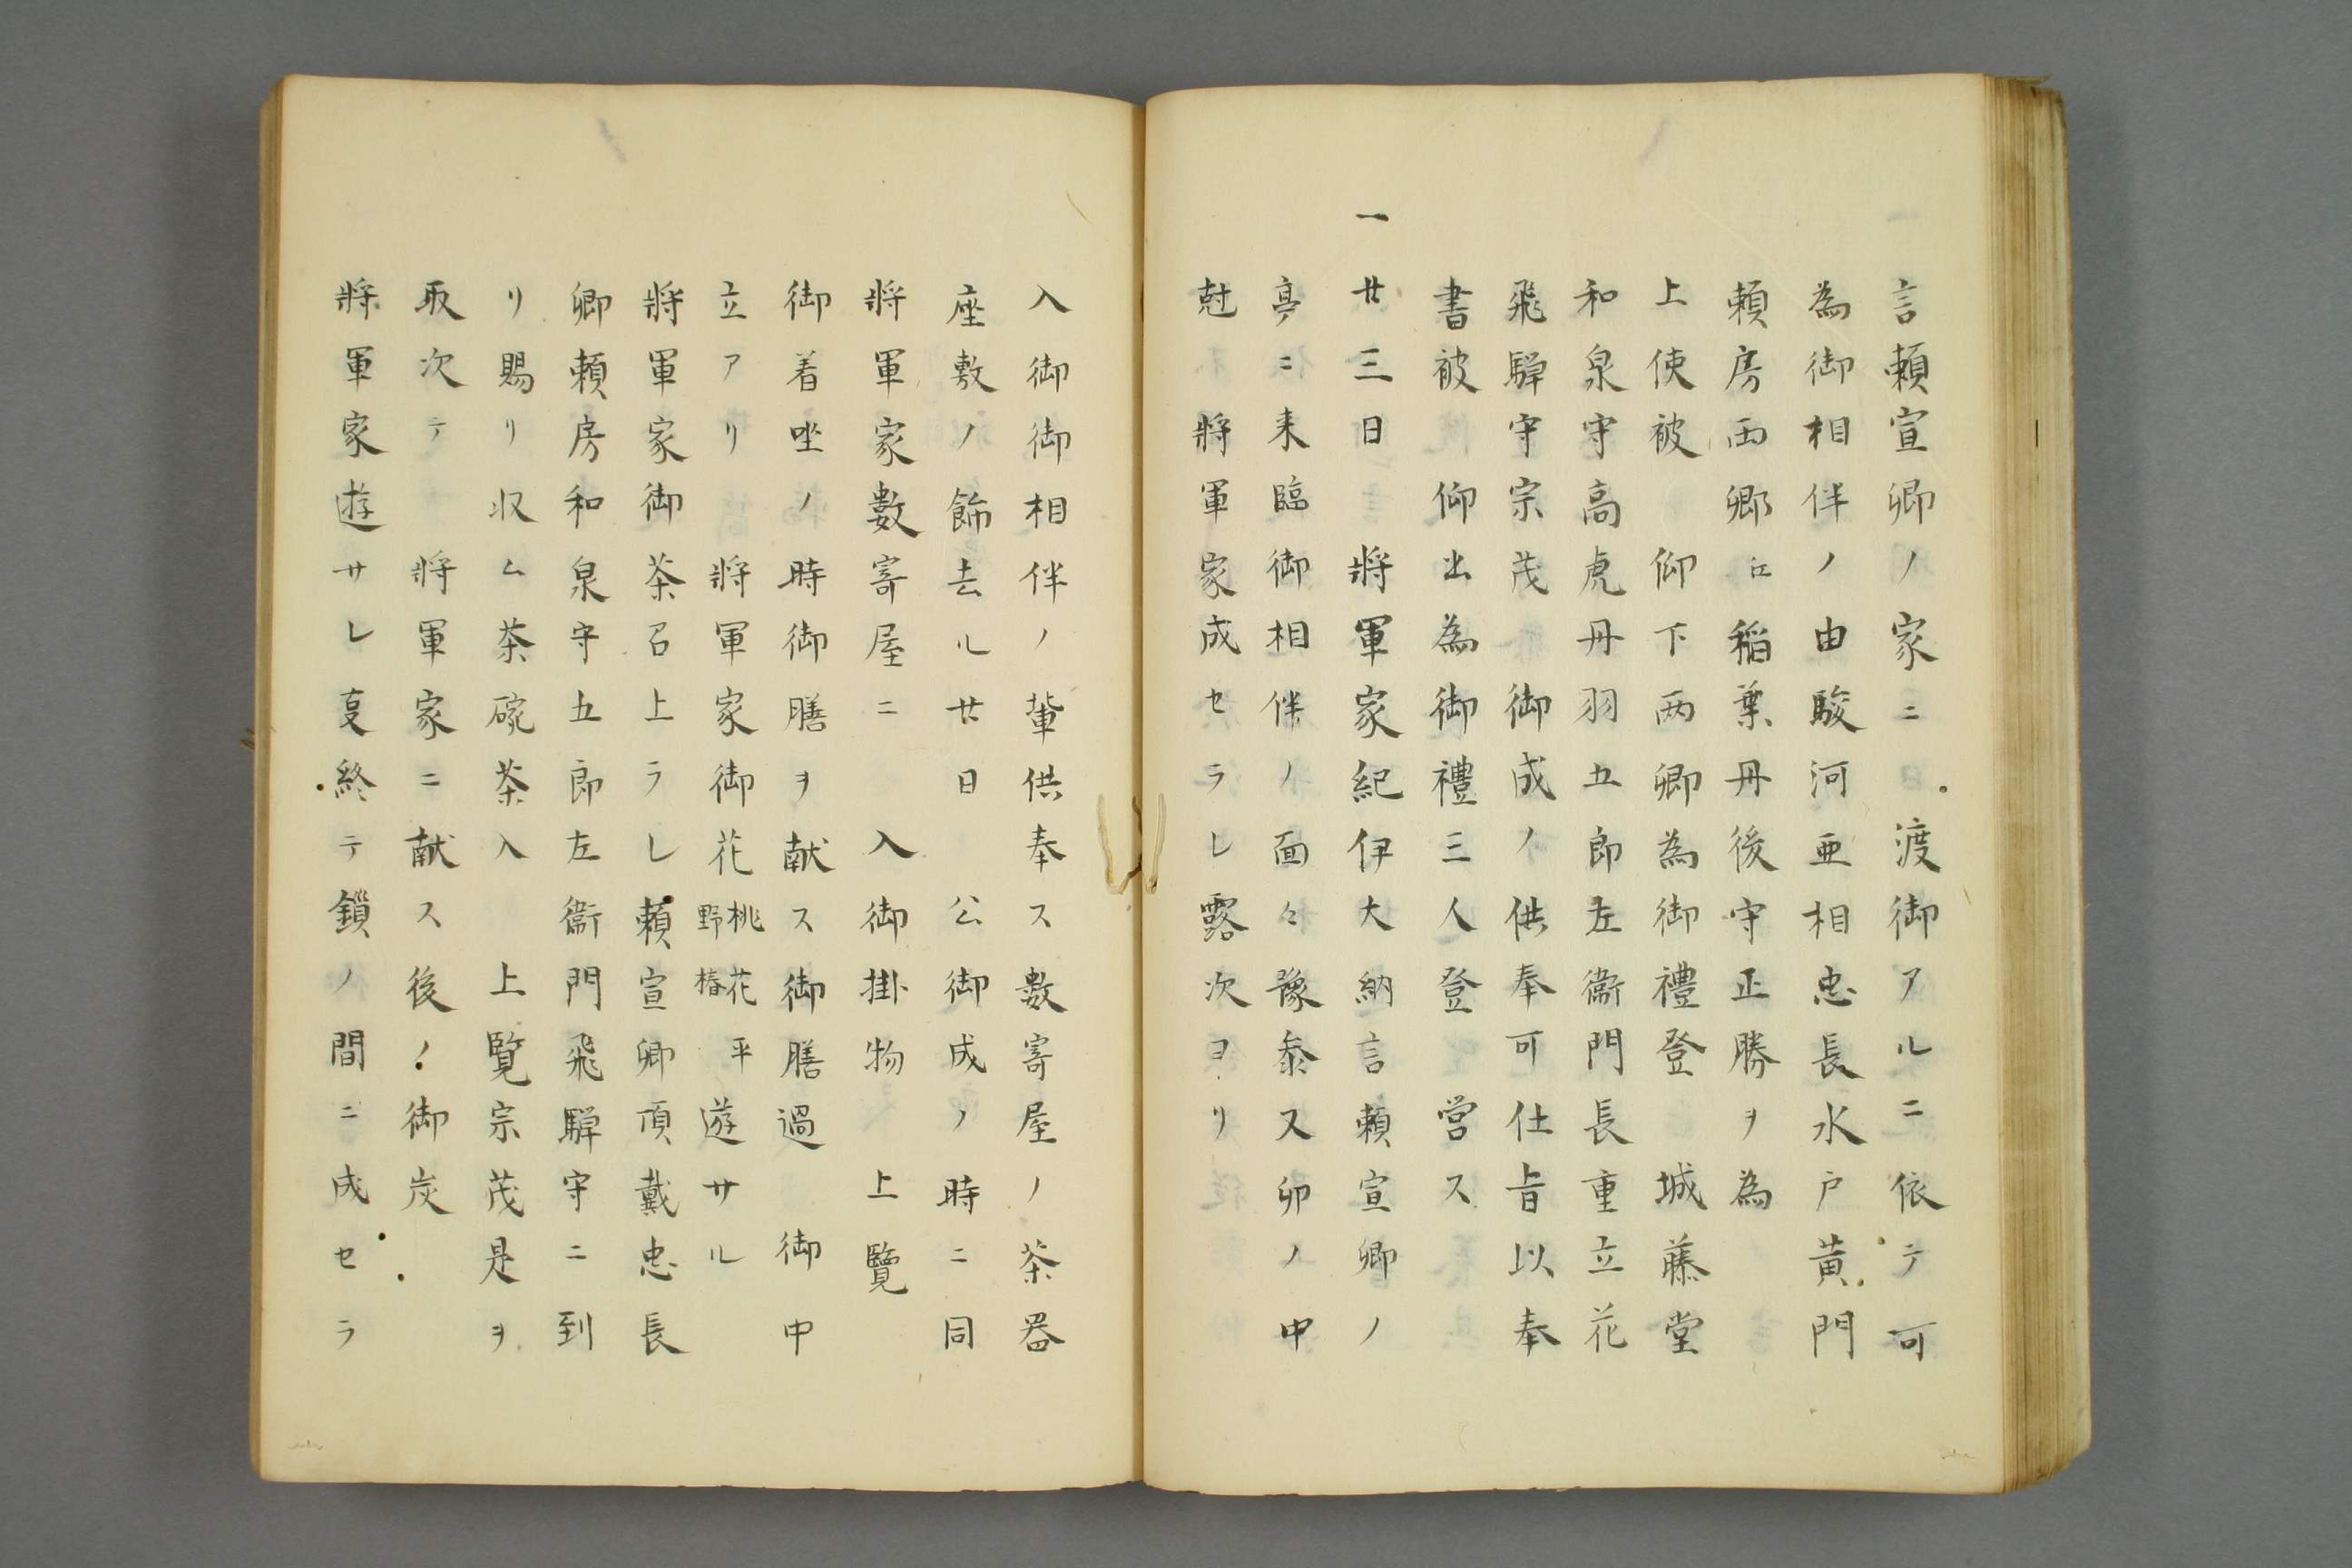 言頼宣卿ノ家ニ　渡御アルニ依テ可
為御相伴ノ由駿河亜相忠長水戸黄門
頼房両卿江稲葉丹後守正勝ヲ為
上使被　仰下両卿為御禮登　城藤堂
和泉守高虎丹羽五郎左衛門長重立花
飛騨守宗茂　御成ノ供奉可仕旨以奉
書被　仰出為御禮三人登　営ス
一廿三日　将軍家紀伊大納言頼宣卿ノ
亭ニ来臨御相伴ノ面々豫參又卯ノ中
尅　将軍家成セラレ露次ヨリ
入御御相伴ノ輩供奉ス數寄屋ノ茶器
座敷ノ飾去ル廿日　公御成ノ時ニ同
将軍家數寄屋ニ　入御掛物　上覽
御着坐ノ時御膳ヲ献ス御膳過　御中
立アリ　将軍家御花桃花平野椿遊サル
将軍家御茶召上ラレ頼宣卿頂戴忠長
卿頼房和泉守五郎左衛門飛騨守ニ到
リ賜リ収ム茶碗茶入　上覧宗茂是ヲ
取次テ　将軍家ニ献ス後ノ御炭
将軍家遊サレ叓終テ鎖ノ間ニ成セラ